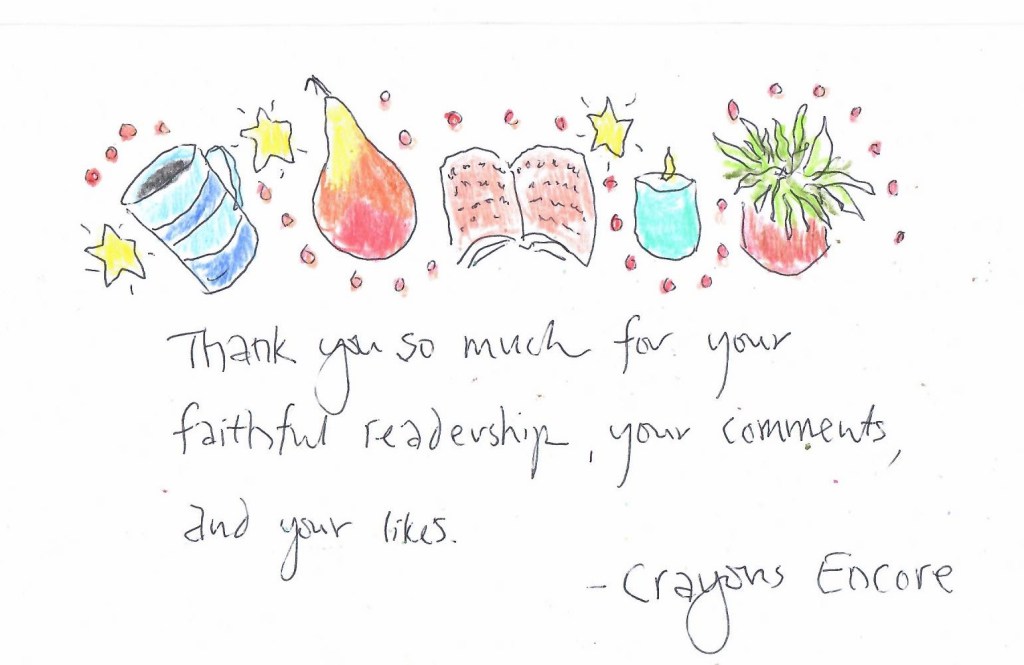 Thank you so much for your
faithful readership, your comments,
and your likes.
- Crayons Encore